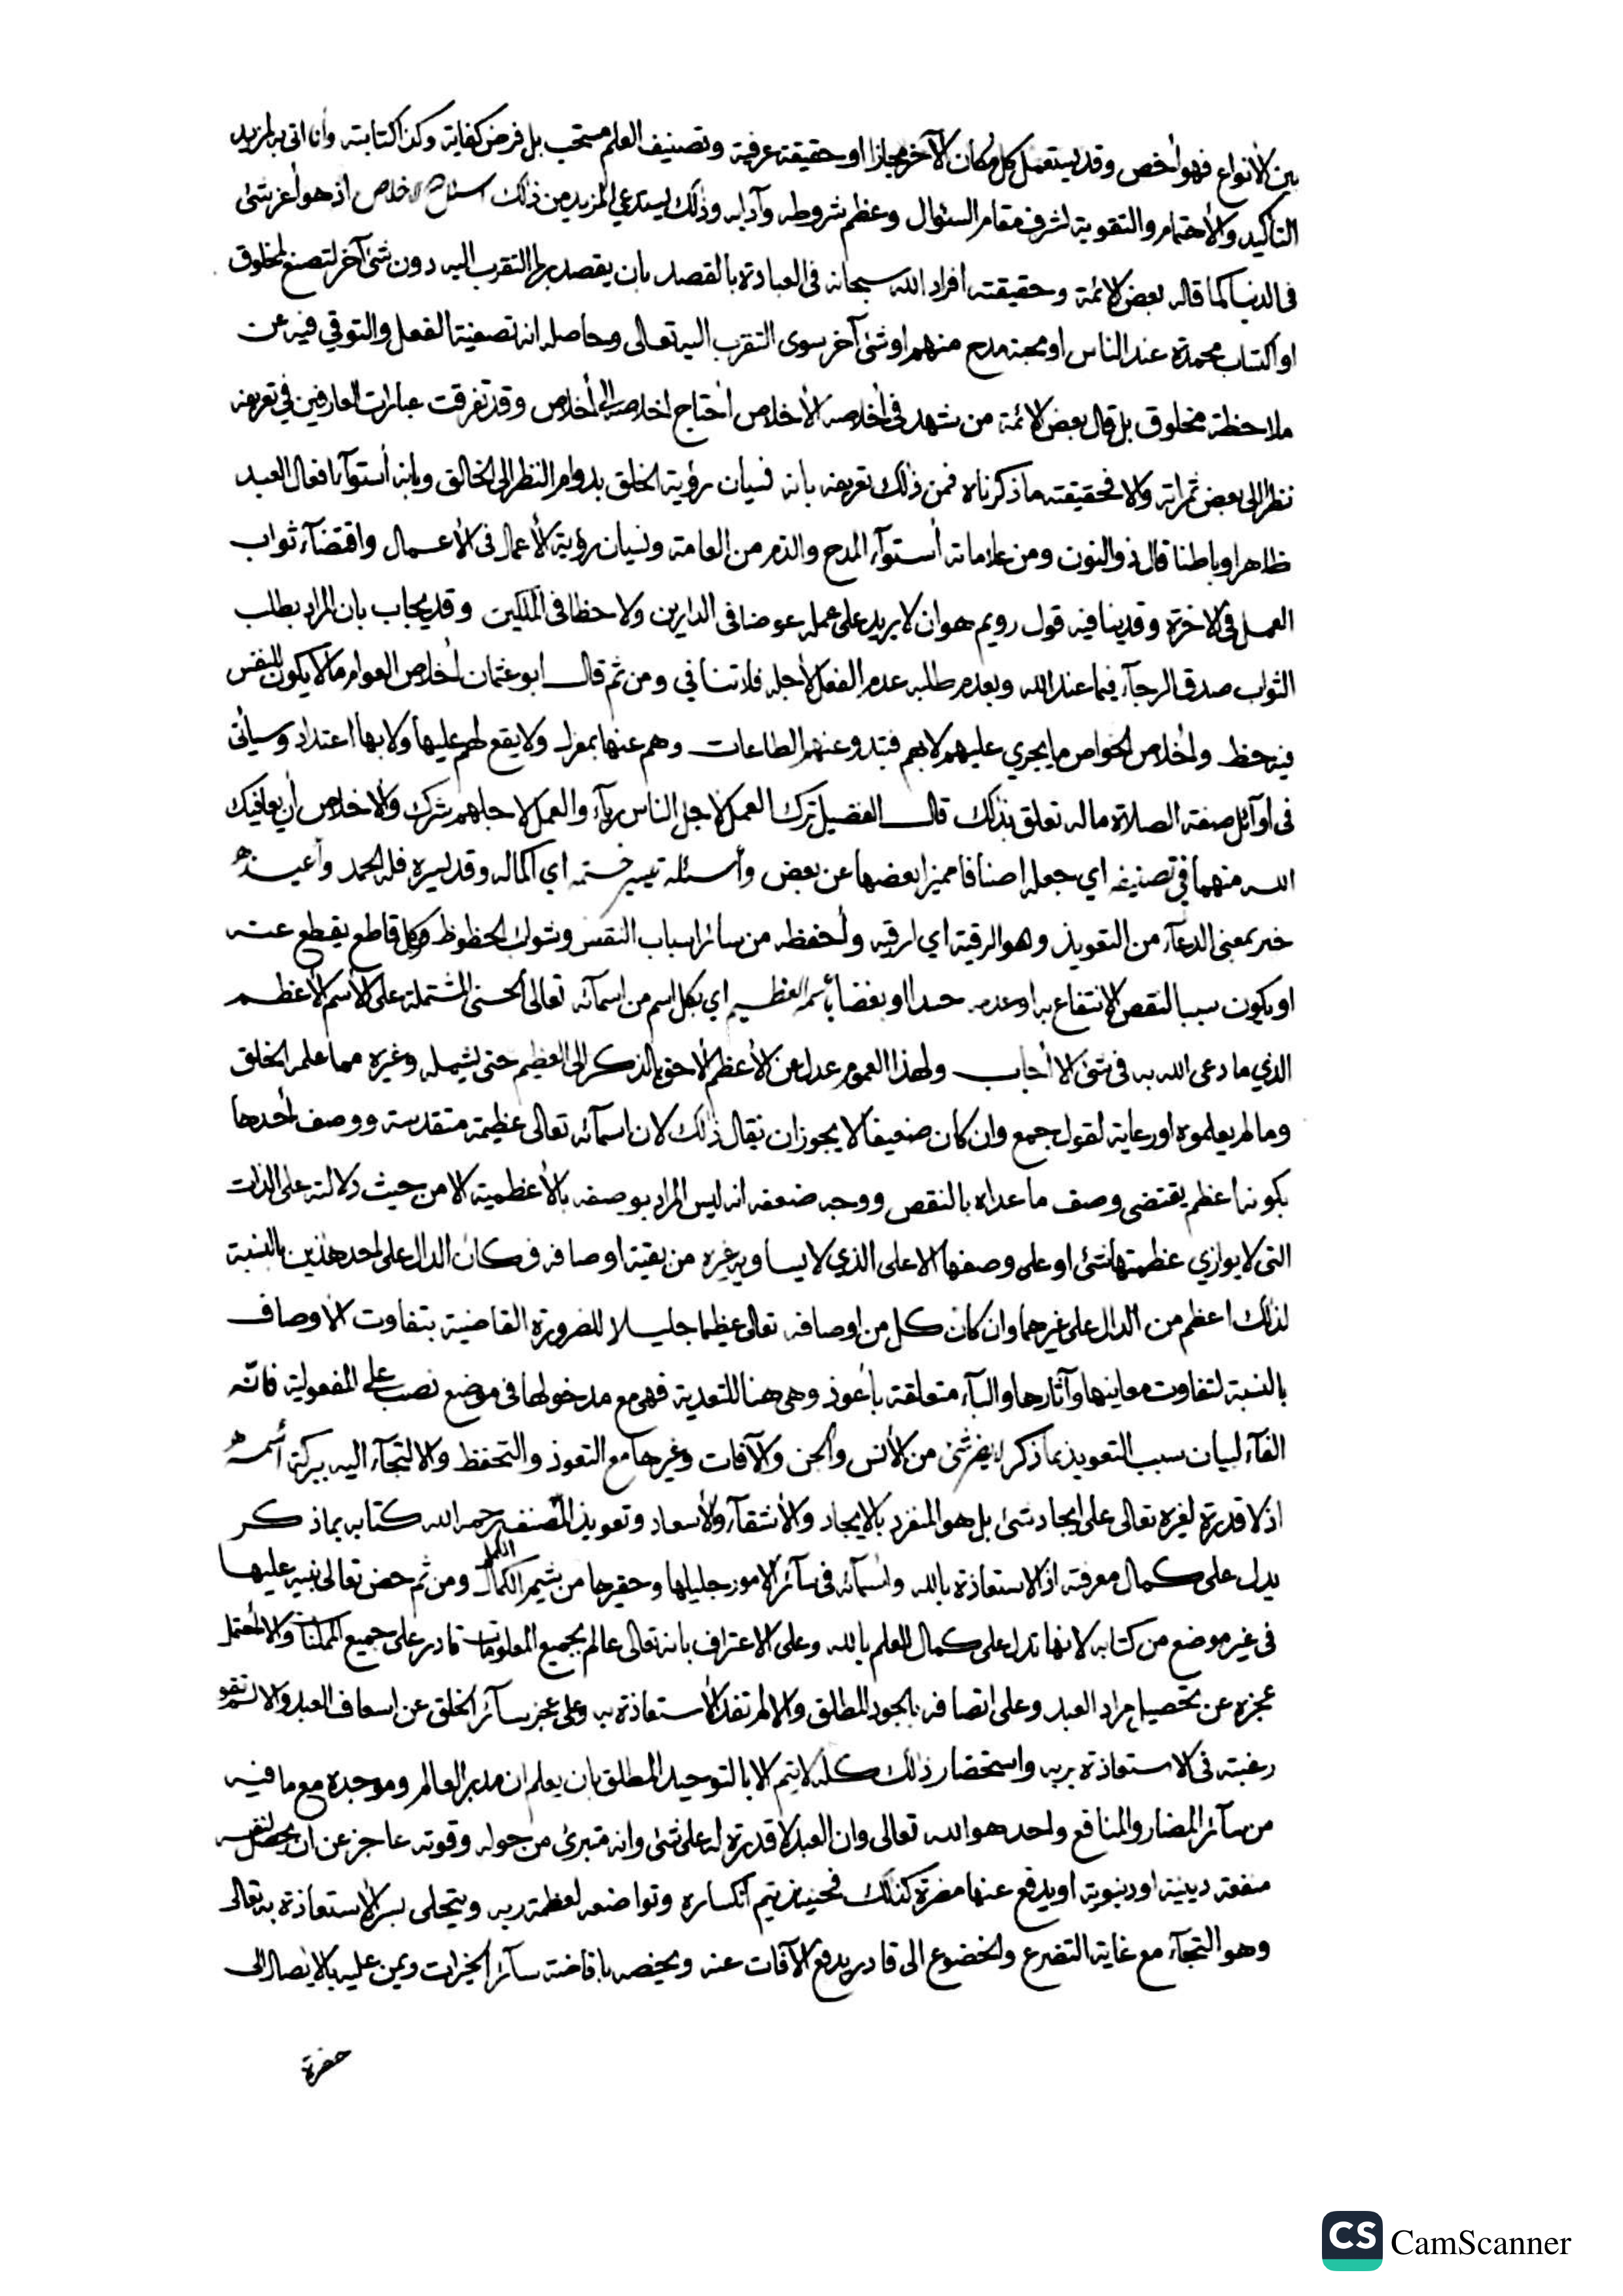 بين الأنواع فهو أخص وقد يستعمل كل مكان الآخر مجازا او حقيقة عرفية وتصنيف العلم مستحب بل فرض كفاية وكذا كتابته وأنا اتى به لمزيد
التأكيد والأهتمام والتقوية لشرف مقام السئوال وعظم شروطه وآدابه وذلك يستدعي المزيد من ذلك اسئل الاخلاص اذ هو أعز شئ
فى الدنيا كما قاله بعض الائمة وحقيقته أفراد الله سبحانه فى العبادة بالقصد بان يقصد بها التقرب اليه دون شئ آخر لتصنع لمخلوق
او اكتساب محمدة عند الناس او محبة مدح منهم او شئ آخر سوى التقرب اليه تعالى وحاصله انه تصفية الفعل والتوقي فيه عن
ملاحظة مخلوق بل قال بعض الائمة من شهد فى أخلاصه الأخلاص أحتاج اخلاصه الى أخلاص وقد تفرقت عبارات العارفين في تعريفه
نظرا الى بعض ثمراته والا فحقيقته ما ذكرناه فمن ذلك تعريفه بانه نسيان رؤية الخلق بدوام النظر الى الخالق وبانه أستوآء افعال العبد
ظاهرا وباطنا قال ذو النون ومن علاماته أستوآء المدح والذم من العامة ونسيان رؤية الأعمال فى الأعمال واقتضآء ثواب
العمل فى الاخرة وقد ينافيه قول رويم هو ان لا يريد على عمله عوضا فى الدارين ولا حظا فى الملكين وقد يجاب بان المراد بطلب
الثواب صدق الرجآء فيما عند الله وبعدم طلبه عدم الفعل لأجله فلا تنافي ومن ثم قال ابو عثمان أخلاص العوام ما لا يكون للنفس
فيه حظ وأخلاص الخواص ما يجري عليهم لا بهم فتبدو عنهم الطاعات وهم عنها بمعزل ولا يقع لهم عليها ولا بها اعتداد وسيأتى
فى اوآئل صفة الصلاة ما له تعلق بذلك قال الفضيل ترك العمل لاجل الناس ريآء والعمل لاجلهم شرك والاخلاص أن يعافيك
الله منهما في تصنيفه اي جعله اصنافا مميزا بعضها عن بعض وأسئله تيسير ختمه اي اكماله وقد يسره فله الحمد وأعيذه
خبر بمعنى الدعآء من التعويذ وهو الرقية اي ارقيه وأحفظه من سائر اسباب النقص وشوائب الحظوظ وكل قاطع يقطع عنه
او يكون سببا لنقص الانتفاع به او عدمه حسدا او بغضا بأسمه العظيم اي بكل اسم من اسمآئه تعالى الحسنى المشتملة على الأسم الأعظم
الذي ما دعى الله به فى شئ الا أجاب ولهذا العموم عدل عن الأعظم الأحق بالذكر الى العظيم حتى يشمله وغيره مما علمه الخلق
وما لم يعلموه او رعاية لقول جمع وان كان ضعيفا لا يجوز ان يقال ذلك لان اسمآئه تعالى عظيمة متقدسة ووصف أحدها
بكونه اعظم يقتضى وصف ما عداه بالنقص ووجه ضعفه انه ليس المراد بوصفه بالأعظمية الا من حيث دلالته على الذات
التى لا يوازي عظمتها شئ او على وصفها الاعلى الذي لا يساويه غيره من بقية اوصافه فكان الدال على احد هذين بالنسبة
لذلك اعظم من الدال على غيرهما وان كان كل من اوصافه تعالى عظيما جليلا للضرورة القاضية بتفاوت الاوصاف
بالنسبة لتفاوت معاينها وآثارها والبآء متعلقة بأعوذ وهى هنا للتعدية فهى مع مدخولها فى موضع نصب على المفعولية فانّه
الفآء لبيان سبب التعويذ بما ذكر لا يضر شئ من الأنس والجن والآفات وغيرها مع التعوذ والتحفظ والالتجآء اليه ببركة أسمه
اذ لا قدرة لغيره تعالى على ايجاد شئ بل هو المنفرد بالايجاد والأشقآء والأسعاد وتعويذ المصنف رحمه الله كتابه بما ذكر
يدل على كمال معرفته اذ الاستعاذة بالله وأسمآئه فى سآئر الامور جليلها وحقيرها من شيم الكمال الكمل ومن ثم حض تعالى نبيه عليها
فى غير موضع من كتابه لانها تدل على كمال العلم بالله وعلى الاعتراف بانه تعالى عالم بجميع المعلومات قادر على جميع الممكنات والا لأحتمل
عجزه عن تحصيل مراد العبد وعلى اتصافه بالجود المطلق والا لم تفد الأستعاذة به وعلى عجز سآئر الخلق عن اسعاف العبد والا لم تقو
رغبته فى الاستعاذة بربه واستحضار ذلك كله لا يتم الا بالتوحيد المطلق بان يعلم ان مدبر العالم وموجده مع ما فيه
من سآئر المضار والمنافع واحد هو الله تعالى وان العبد لا قدرة له على شئ وانه متبرئ من حوله وقوته عاجز عن ان يحصل لنفسه
منفعة دينية او دنيوية او يدفع عنها مضرة كذلك فحينئذ يتم انكساره وتواضعه لعظمة ربه ويتحلى بسر الأستعاذة به تعالى
وهو التجآء مع غاية التضرع والخضوع الى قادر يدفع الآفات عنه ويخصه بافاضة سآئر الخيرات ويمن عليه بالايصال الى
حضرة
CS CamScanner